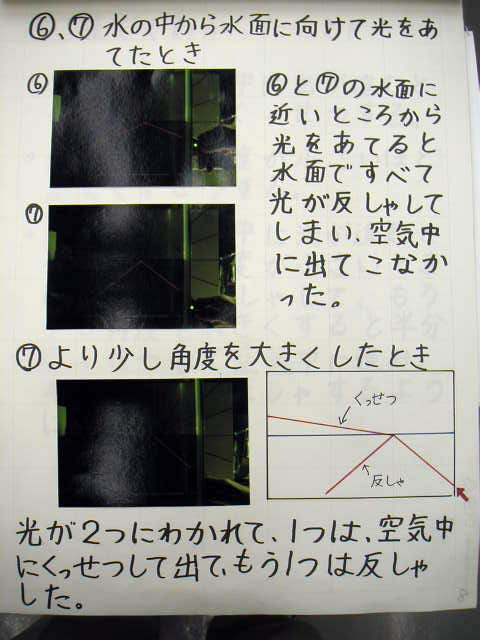 ⑥、⑦ 水の中から水面に向けて光をあ
てたとき
⑥
⑥と⑦の水面に
近いところから
光をあてると
水面ですべて
光が反しゃして
しまい、空気中
に出てこなか
った。
⑦
⑦より少し角度を大きくしたとき
くっせつ
反しゃ
光が2つにわかれて、1つは、空気中
にくっせつして出て、もう1つは反しゃ
した。